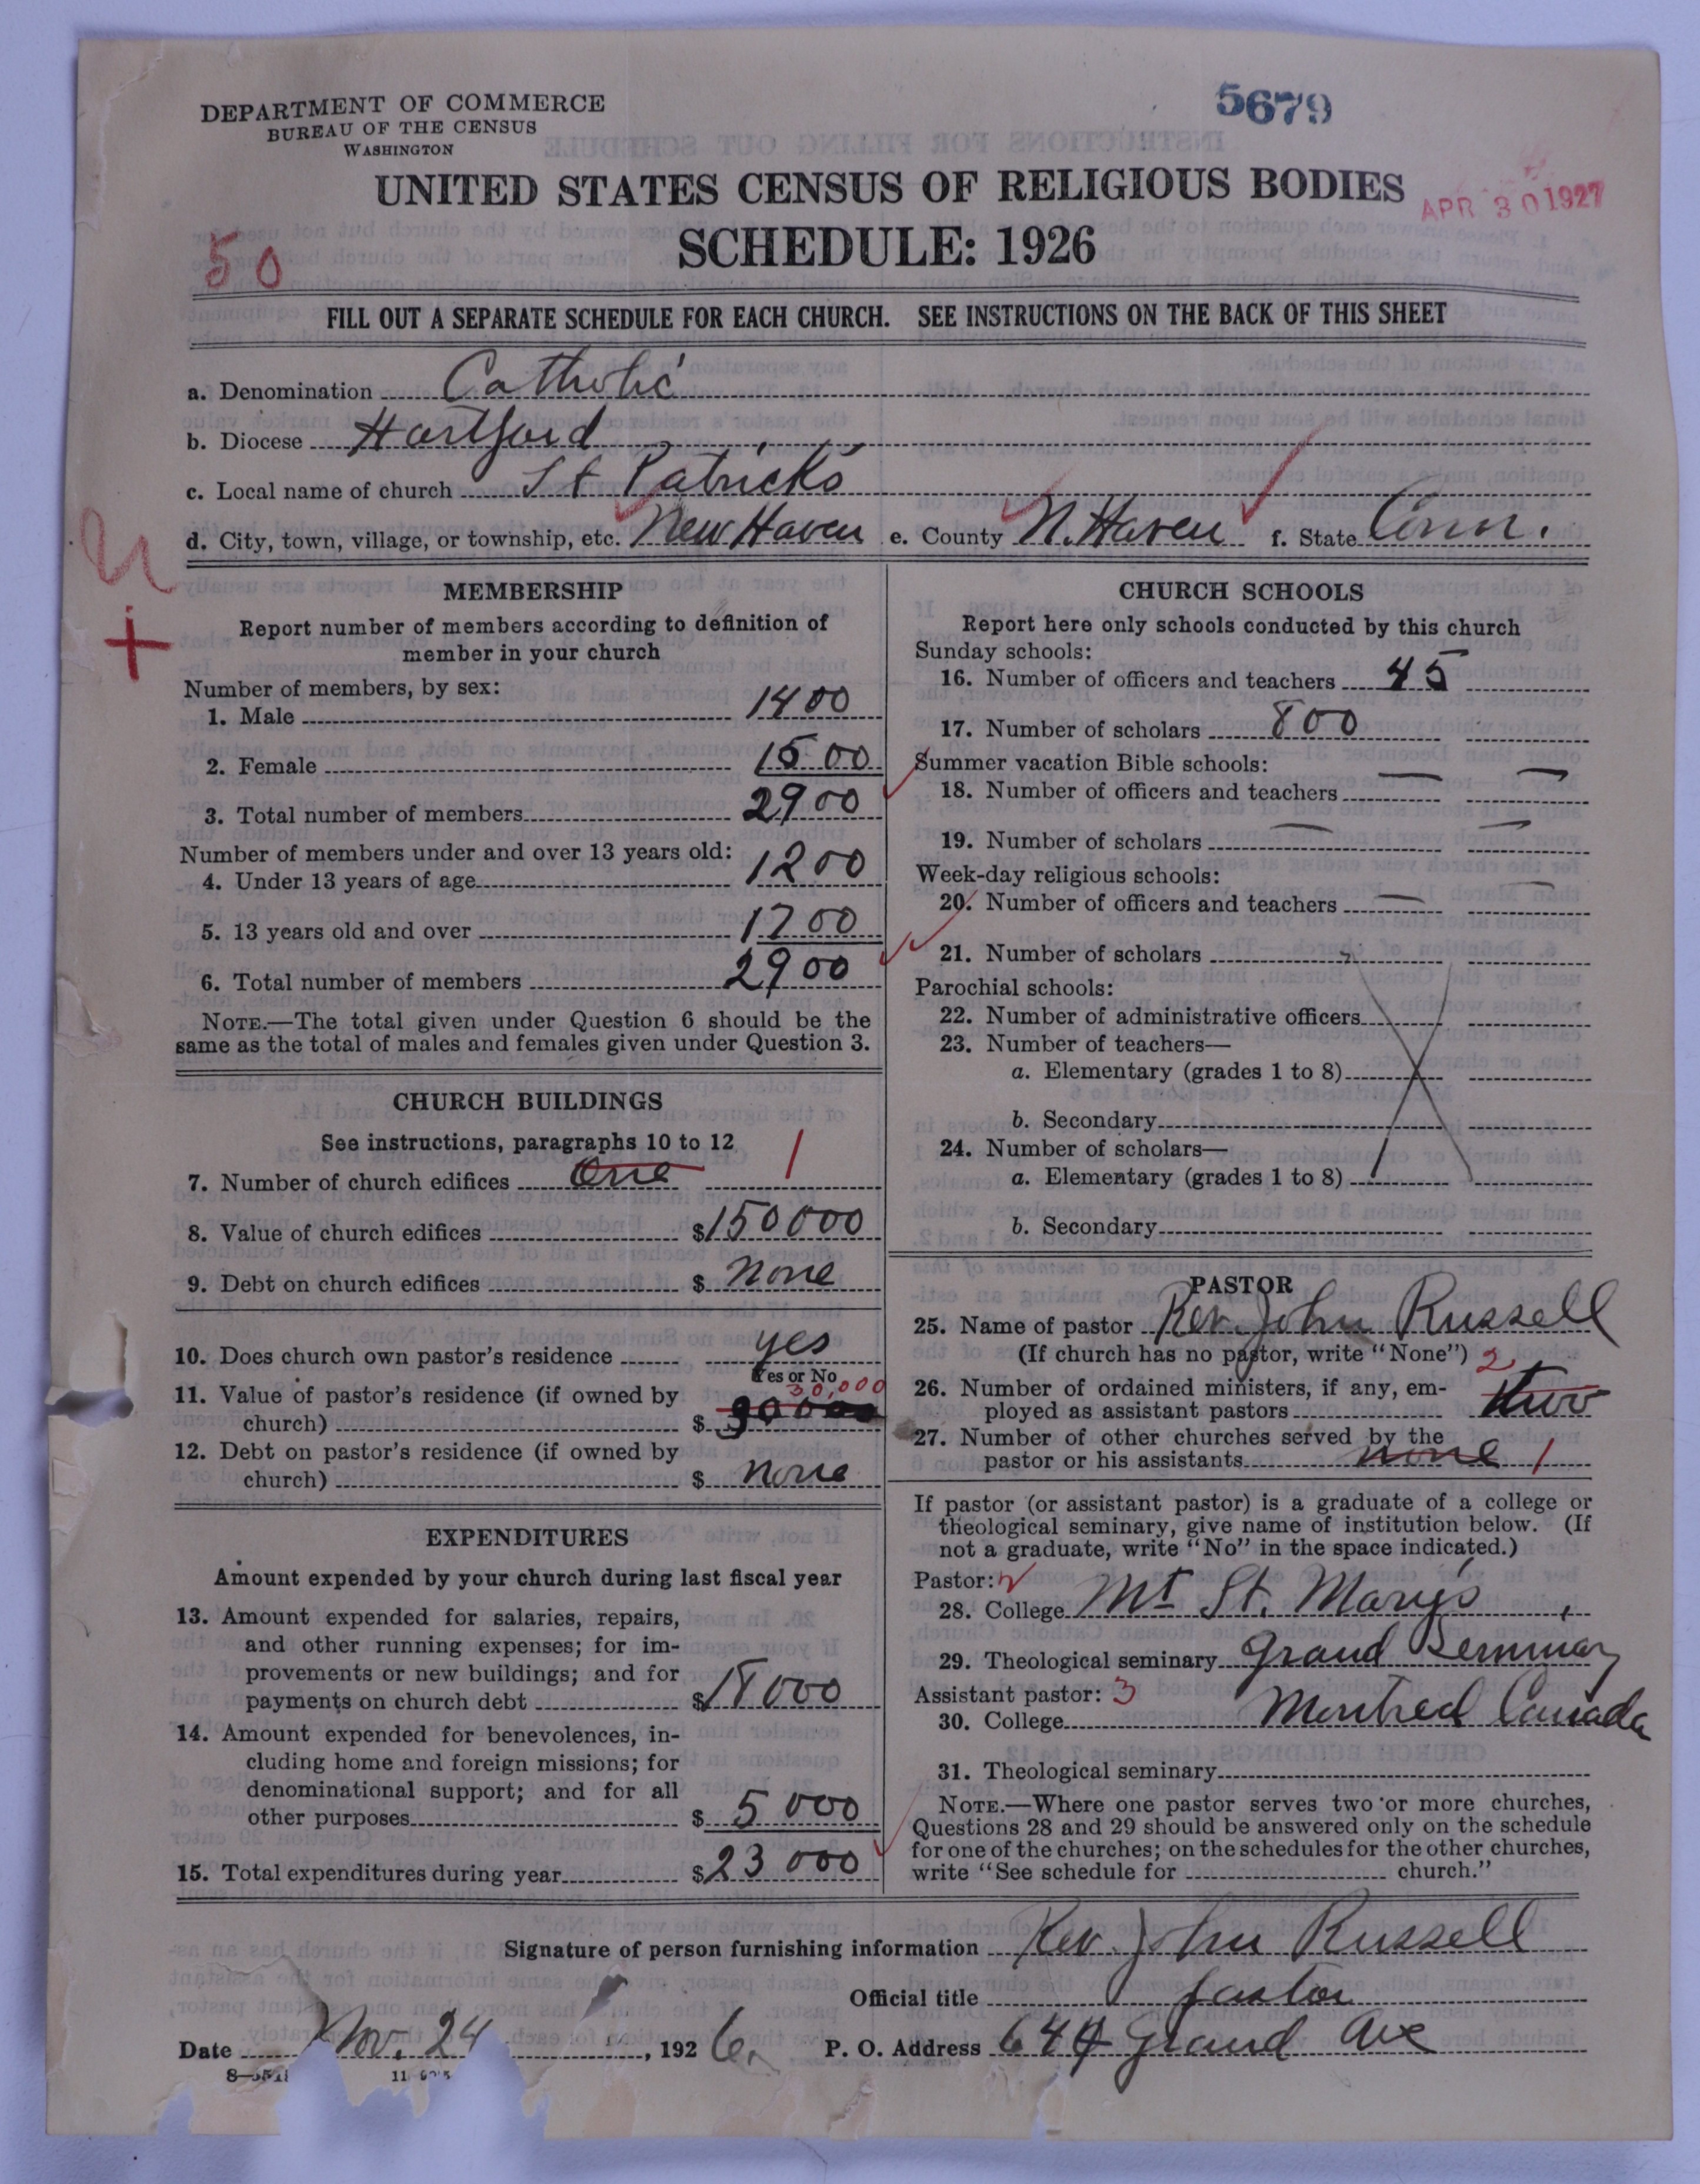 DEPARTMENT OF COMMERCE
BUREAU OF THE CENSUS
WASHINGTON
5679
UNITED STATES CENSUS OF RELIGIOUS BODIES
APR 30 1927
SCHEDULE: 1926
50
FILL OUT A SEPARATE SCHEDULE FOR EACH CHURCH. SEE INSTRUCTIONS ON THE BACK OF THIS SHEET
a. Denomination Catholic
b. Diocese Hartford
c. Local name of church St Patrick's
d. City, town, village, or township, etc. New Haven e. County N. Haven f. State Conn.
MEMBERSHIP
Report number of members according to definition of
member in your church
Number of members, by sex:
1. Male 1400
2. Female 1500
3. Total number of members 2900
Number of members under and over 13 years old:
4. Under 13 years of age 1200
5. 13 years old and over 1700
6. Total number of members 2900
NOTE.—The total given under Question 6 should be the
same as the total of males and females given under Question 3.
CHURCH BUILDINGS
See instructions, paragraphs 10 to 12
7. Number of church edifices One 1
8. Value of church edifices $150000
9. Debt on church edifices $ none
10. Does church own pastor's residence yes
Yes or No
11. Value of pastor's residence (if owned by
church) $ 30000 30,000
12. Debt on pastor's residence (if owned by
church) $ none
EXPENDITURES
Amount expended by your church during last fiscal year
13. Amount expended for salaries, repairs,
and other running expenses; for im-
provements or new buildings; and for
payments on church debt $18000
14. Amount expended for benevolences, in-
cluding home and foreign missions; for
denominational support; and for all
other purposes $ 5000
15. Total expenditures during year $23000
CHURCH SCHOOLS
Report here only schools conducted by this church
Sunday schools:
16. Number of officers and teachers 45
17. Number of scholars 800
Summer vacation Bible schools:
18. Number of officers and teachers — —
19. Number of scholars — —
Week-day religious schools:
20. Number of officers and teachers — —
21. Number of scholars
Parochial schools:
22. Number of administrative officers
23. Number of teachers—
a. Elementary (grades 1 to 8)
b. Secondary
24. Number of scholars—
a. Elementary (grades 1 to 8)
b. Secondary
PASTOR
25. Name of pastor Rev. John Russell
(If church has no pastor, write "None")
26. Number of ordained ministers, if any, em-
ployed as assistant pastors two 2
27. Number of other churches served by the
pastor or his assistants none 1
If pastor (or assistant pastor) is a graduate of a college or
theological seminary, give name of institution below. (If
not a graduate, write "No" in the space indicated.)
Pastor:
28. College Mt St. Mary's,
29. Theological seminary Grand Seminary
Assistant pastor: 3 Montreal Canada
30. College
31. Theological seminary
NOTE.—Where one pastor serves two or more churches,
Questions 28 and 29 should be answered only on the schedule
for one of the churches; on the schedules for the other churches,
write "See schedule for church."
Signature of person furnishing information Rev. John Russell
Official title Pastor
Date Nov. 24, 1926 P. O. Address 644 Grand Ave